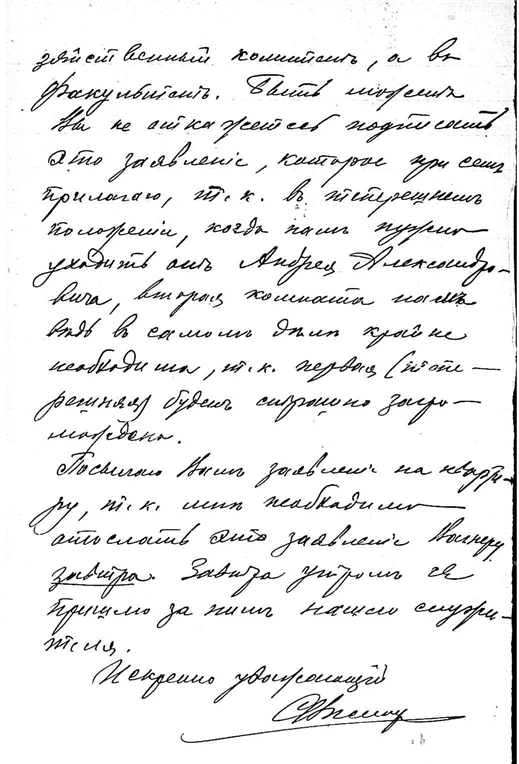 зяйственный комитетъ, а въ
факультетъ. Быть можетъ
Вы не откажетесь подписать
это заявленіе, которое при семъ
прилагаю, т.к. въ теперешнемъ
положеніи, когда намъ нужно
уходить отъ Андрея Александро-
вича, вторая комната намъ
ведь въ самомъ дѣлѣ крайне
необходима, т.к. первая (тепе-
решняя) будетъ страшно загро-
мождена.
Посылаю Вамъ заявленіе на кварти-
ру, т.к. мнѣ необходимо
отослать это заявленіе Вагнеру
завтра. Завтра утромъ я
пришлю за нимъ нашего служи-
теля.
Искренно уважающій